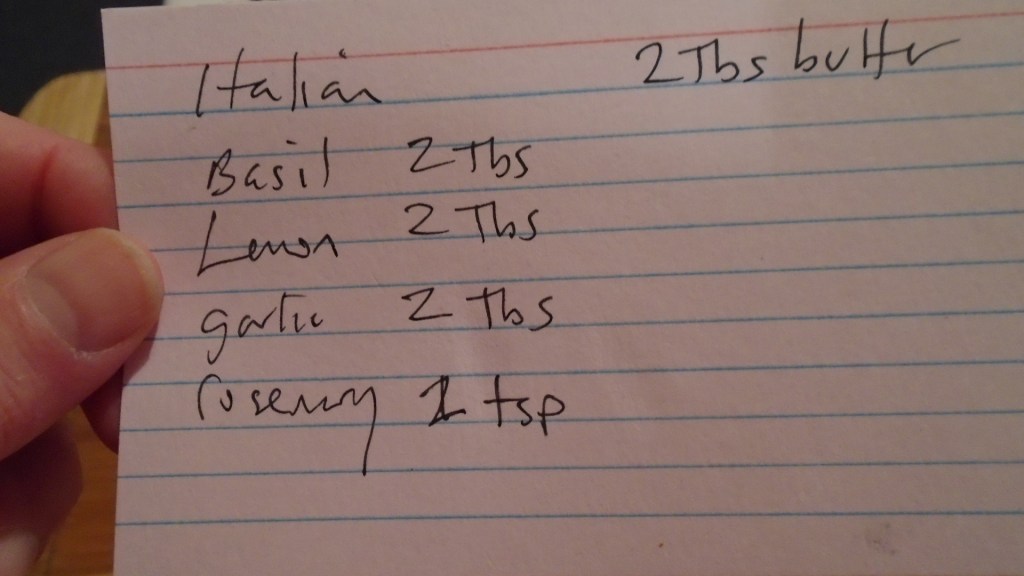 Italian 2 Tbs butter
Basil 2 Tbs
Lemon 2 Tbs
garlic 2 Tbs
rosemary 1 tsp